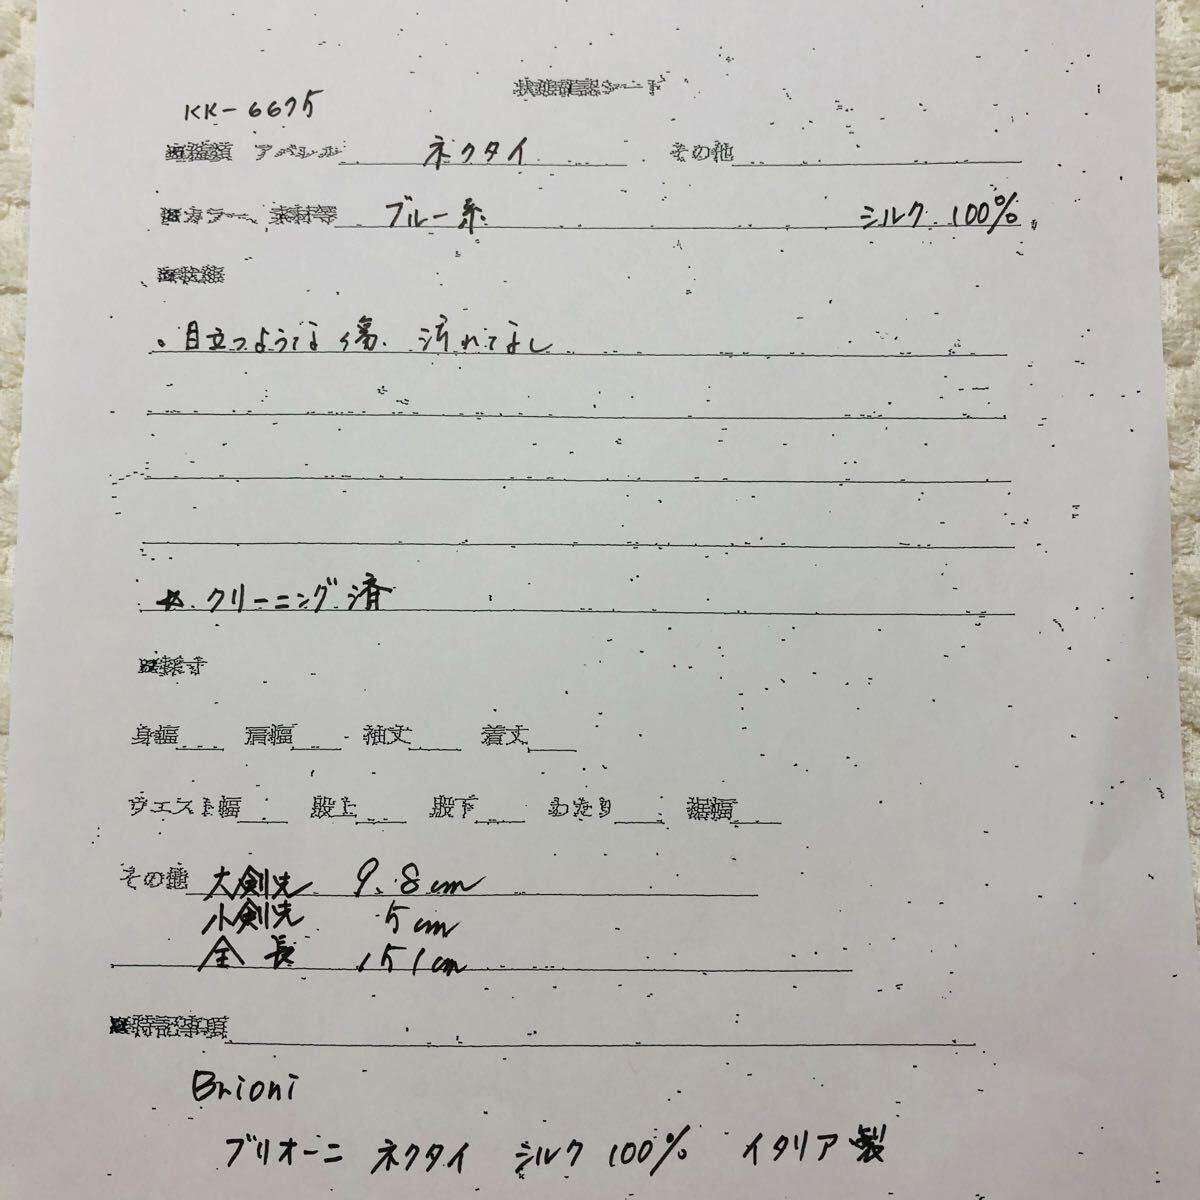 状態確認シート
KK-6675
■種類 アパレル ネクタイ その他
■カラー、素材等 ブルー系 シルク 100%
■状態
。目立つような傷、汚れてなし
☆ クリーニング済
■採寸
身幅 肩幅 袖丈 着丈
ウエスト幅 股上 股下 わたり 裾幅
その他 大剣先 9.8cm
小剣先 5cm
全長 151cm
■特記事項
Brioni
ブリオーニ ネクタイ シルク 100% イタリア製